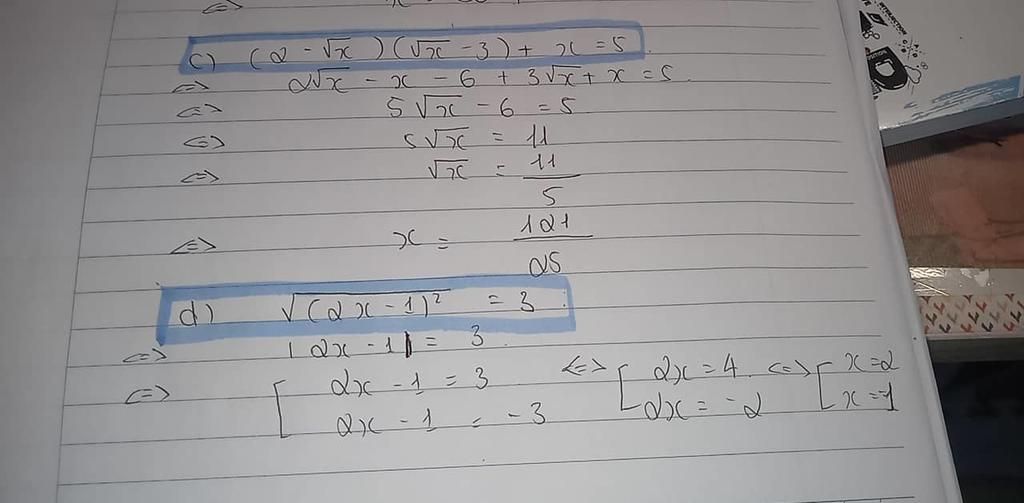 c) (2 - √x)(√x - 3) + x = 5
<=> 2√x - x - 6 + 3√x + x = 5
<=> 5√x - 6 = 5
<=> 5√x = 11
<=> √x = 11/5
<=> x = 121/25
d) √((2x - 1)²) = 3
<=> |2x - 1| = 3
<=> [ 2x - 1 = 3 <=> [ 2x = 4 <=> [ x = 2
2x - 1 = -3 2x = -2 x = -1